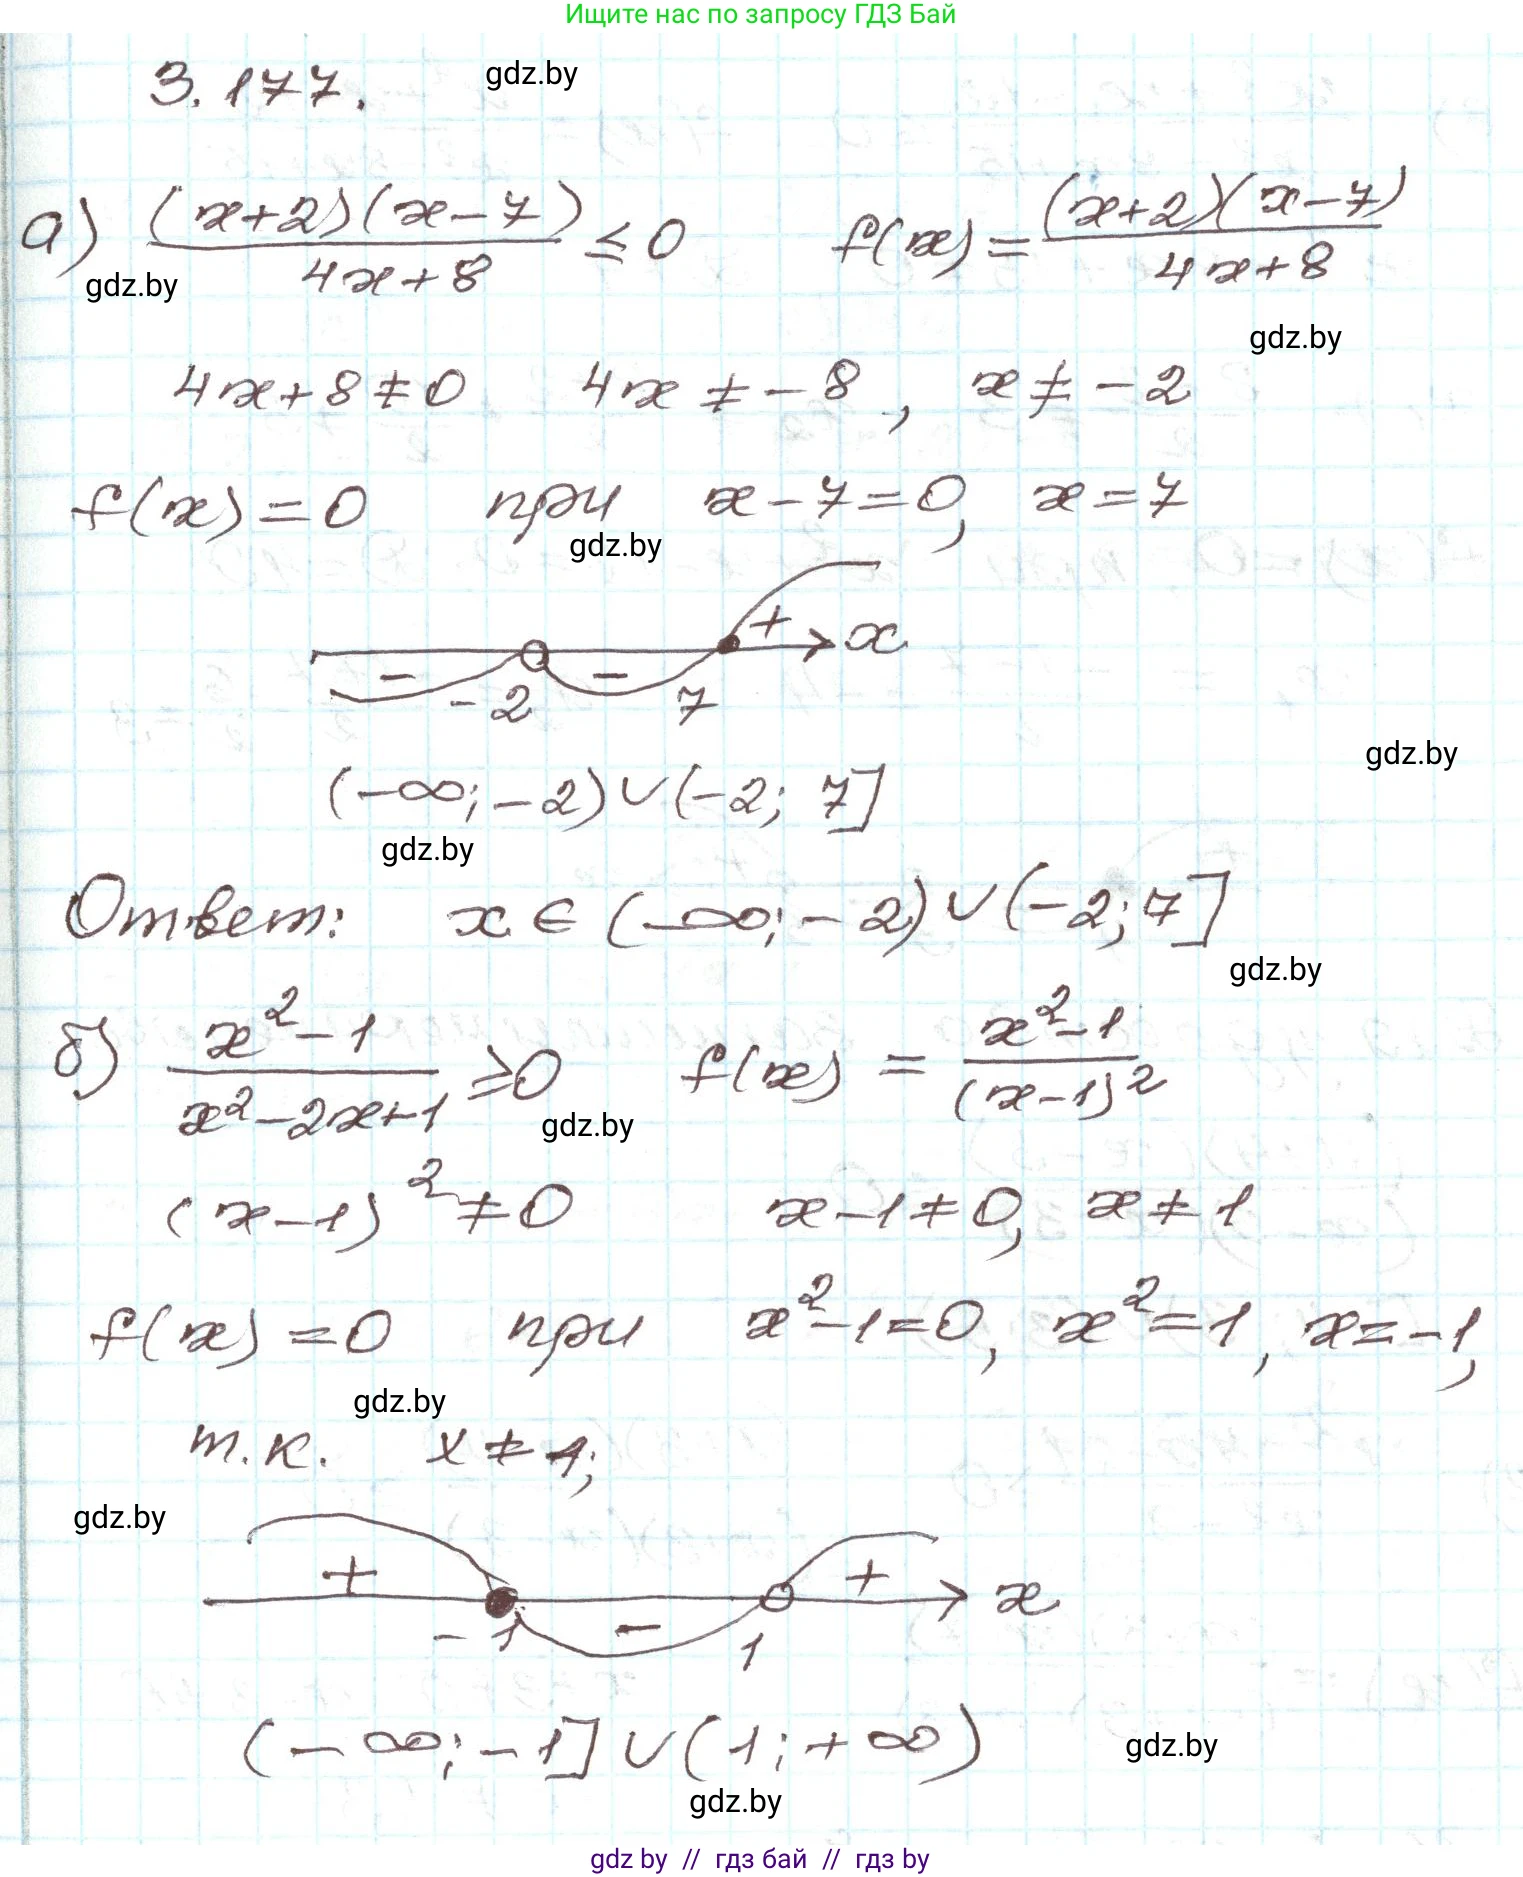 Ищите нас по запросу ГДЗ Бай
3.177. gdz.by
а) (x+2)(x-7)/4x+8 ≤ 0 f(x) = (x+2)(x-7)/4x+8
gdz.by
gdz.by
4x+8≠0 4x ≠ -8, x ≠ -2
f(x) = 0 при x-7=0, x=7
gdz.by
- - + x
-2 7
gdz.by
(-∞; -2) ∪ (-2; 7]
gdz.by
Ответ: x ∈ (-∞; -2) ∪ (-2; 7]
gdz.by
б) x²-1/x²-2x+1 ≥ 0 f(x) = x²-1/(x-1)²
gdz.by
(x-1)² ≠ 0 x-1≠0, x ≠ 1
f(x) = 0 при x²-1=0, x²=1, x=-1,
gdz.by
т.к. x ≠ 1;
gdz.by
+ - + x
-1 1
(-∞; -1] ∪ (1; +∞)
gdz.by
gdz.by
gdz by // гдз бай // гдз by